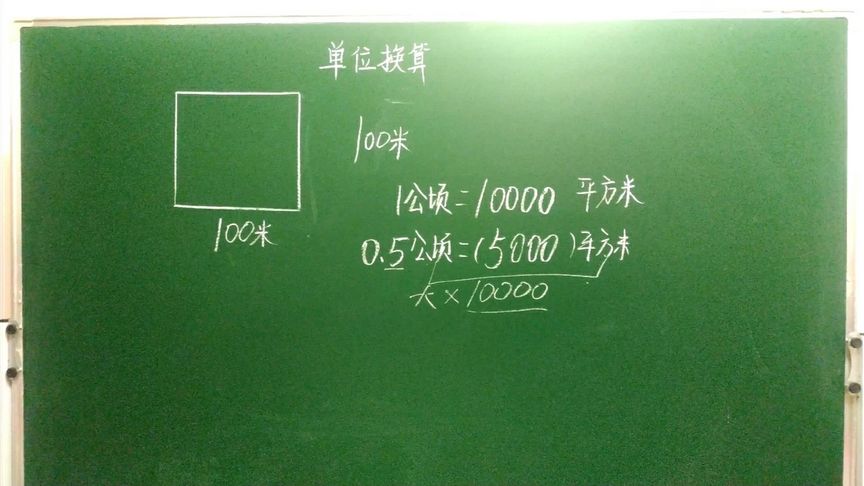 单位换算
100米
1公顷=10000 平方米
100米
0.5公顷=(5000)平方米
大×10000